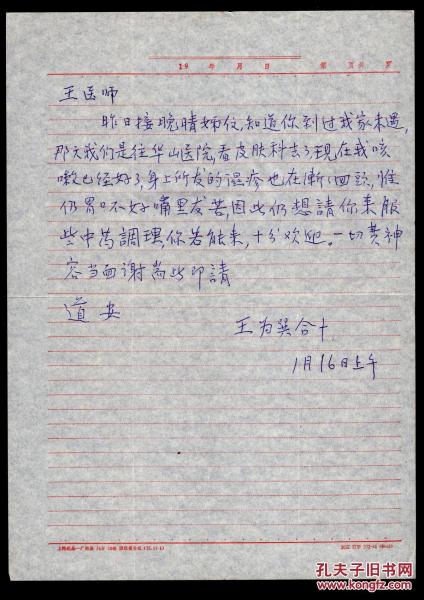 19 年 月 日 第 页共 页
王医师
昨日接晚晴姊信,知道你到过我家未遇,
那天我们是往华山医院,看皮肤科去了,现在我咳
嗽已经好了,身上所发的湿疹也在漸漸回頭,惟
仍胃口不好嘴里发苦,因此仍想請你来服
些中药調理,你若能来,十分欢迎。一切费神
容当面谢耑此即請
道安
王为巽合十
1月16日上午
孔夫子旧书网